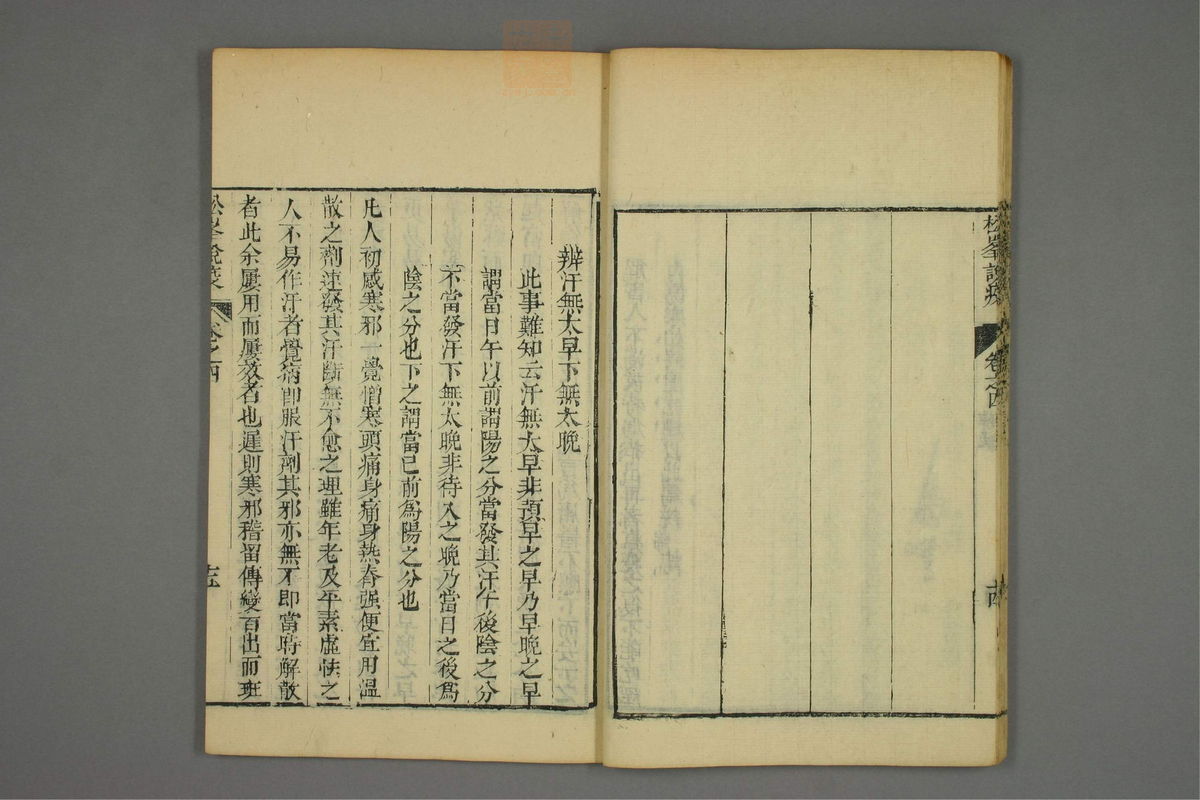 松峯說疫 卷之四
辨汗無太早下無太晩
此事難知云汗無太早非預早之早乃早晩之早
謂當日午以前謂陽之分當發其汗午後陰之分
不當發汗下無太晩非待久之晩乃當日之後爲
陰之分也下之謂當巳前爲陽之分也
凡人初感寒邪一覺憎寒頭痛身痛身熱脊强便宜用溫
散之劑速發其汗斷無不愈之理雖年老及平素虛怯之
人不易作汗者覺病卽服汗劑其邪亦無不卽當時解散
者此余屢用而屢效者也遲則寒邪稽留傳變百出而班
松峯說疫 卷之四